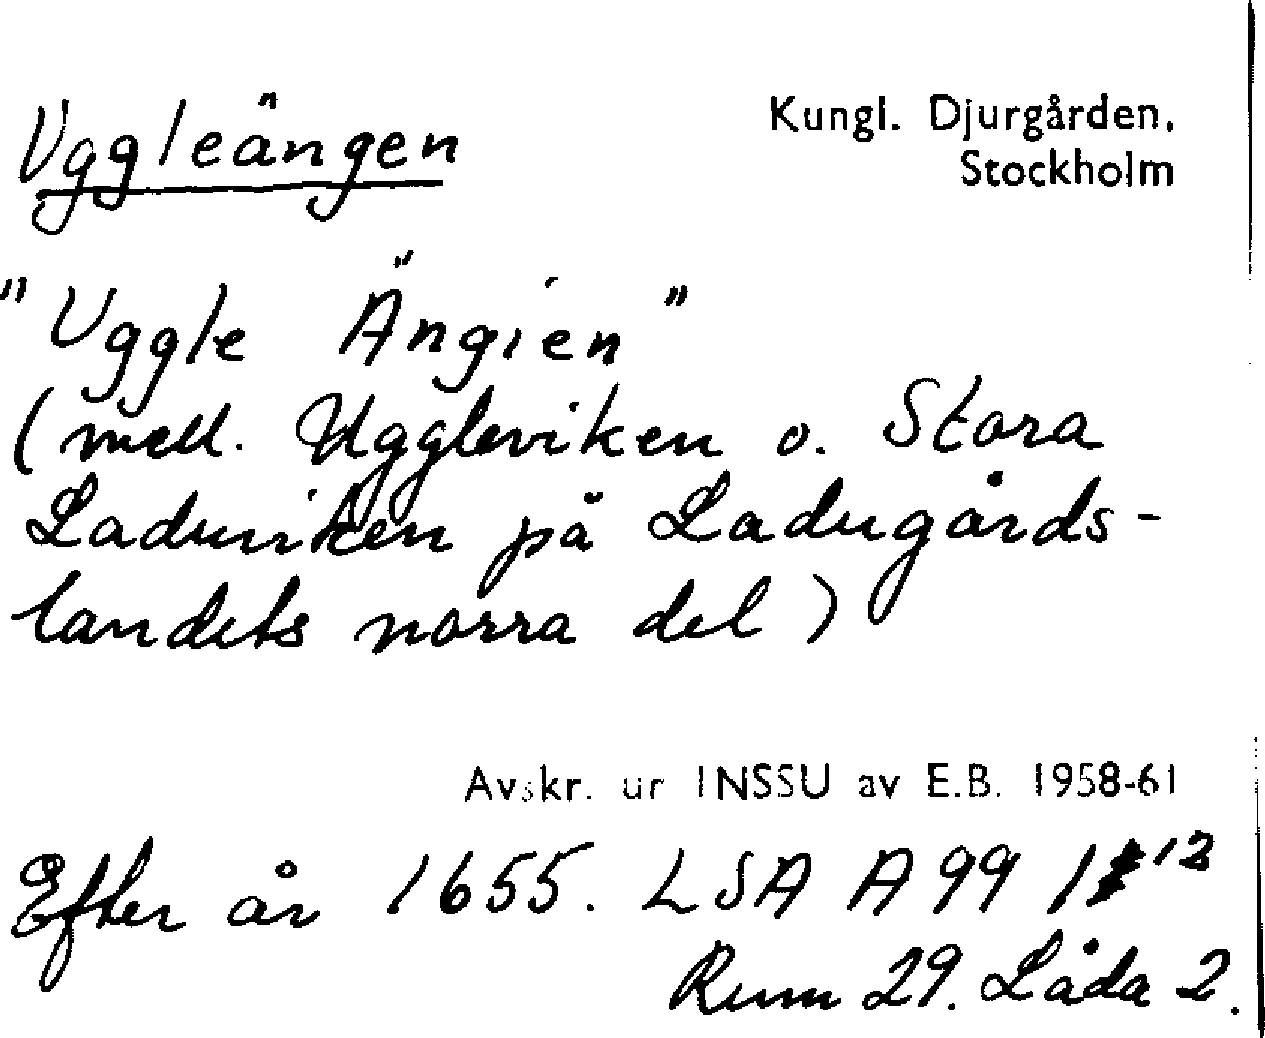 Uggleängen
Kungl. Djurgården,
Stockholm
"Uggle Ängien"
(mell. Uggleviken o. Stora
Laduviken på Ladugårds-
landets norra del)
Avskr. ur INSSU av E.B. 1958-61
Efter år 1655. LSA A 99 12
Rum 29. Låda 2.